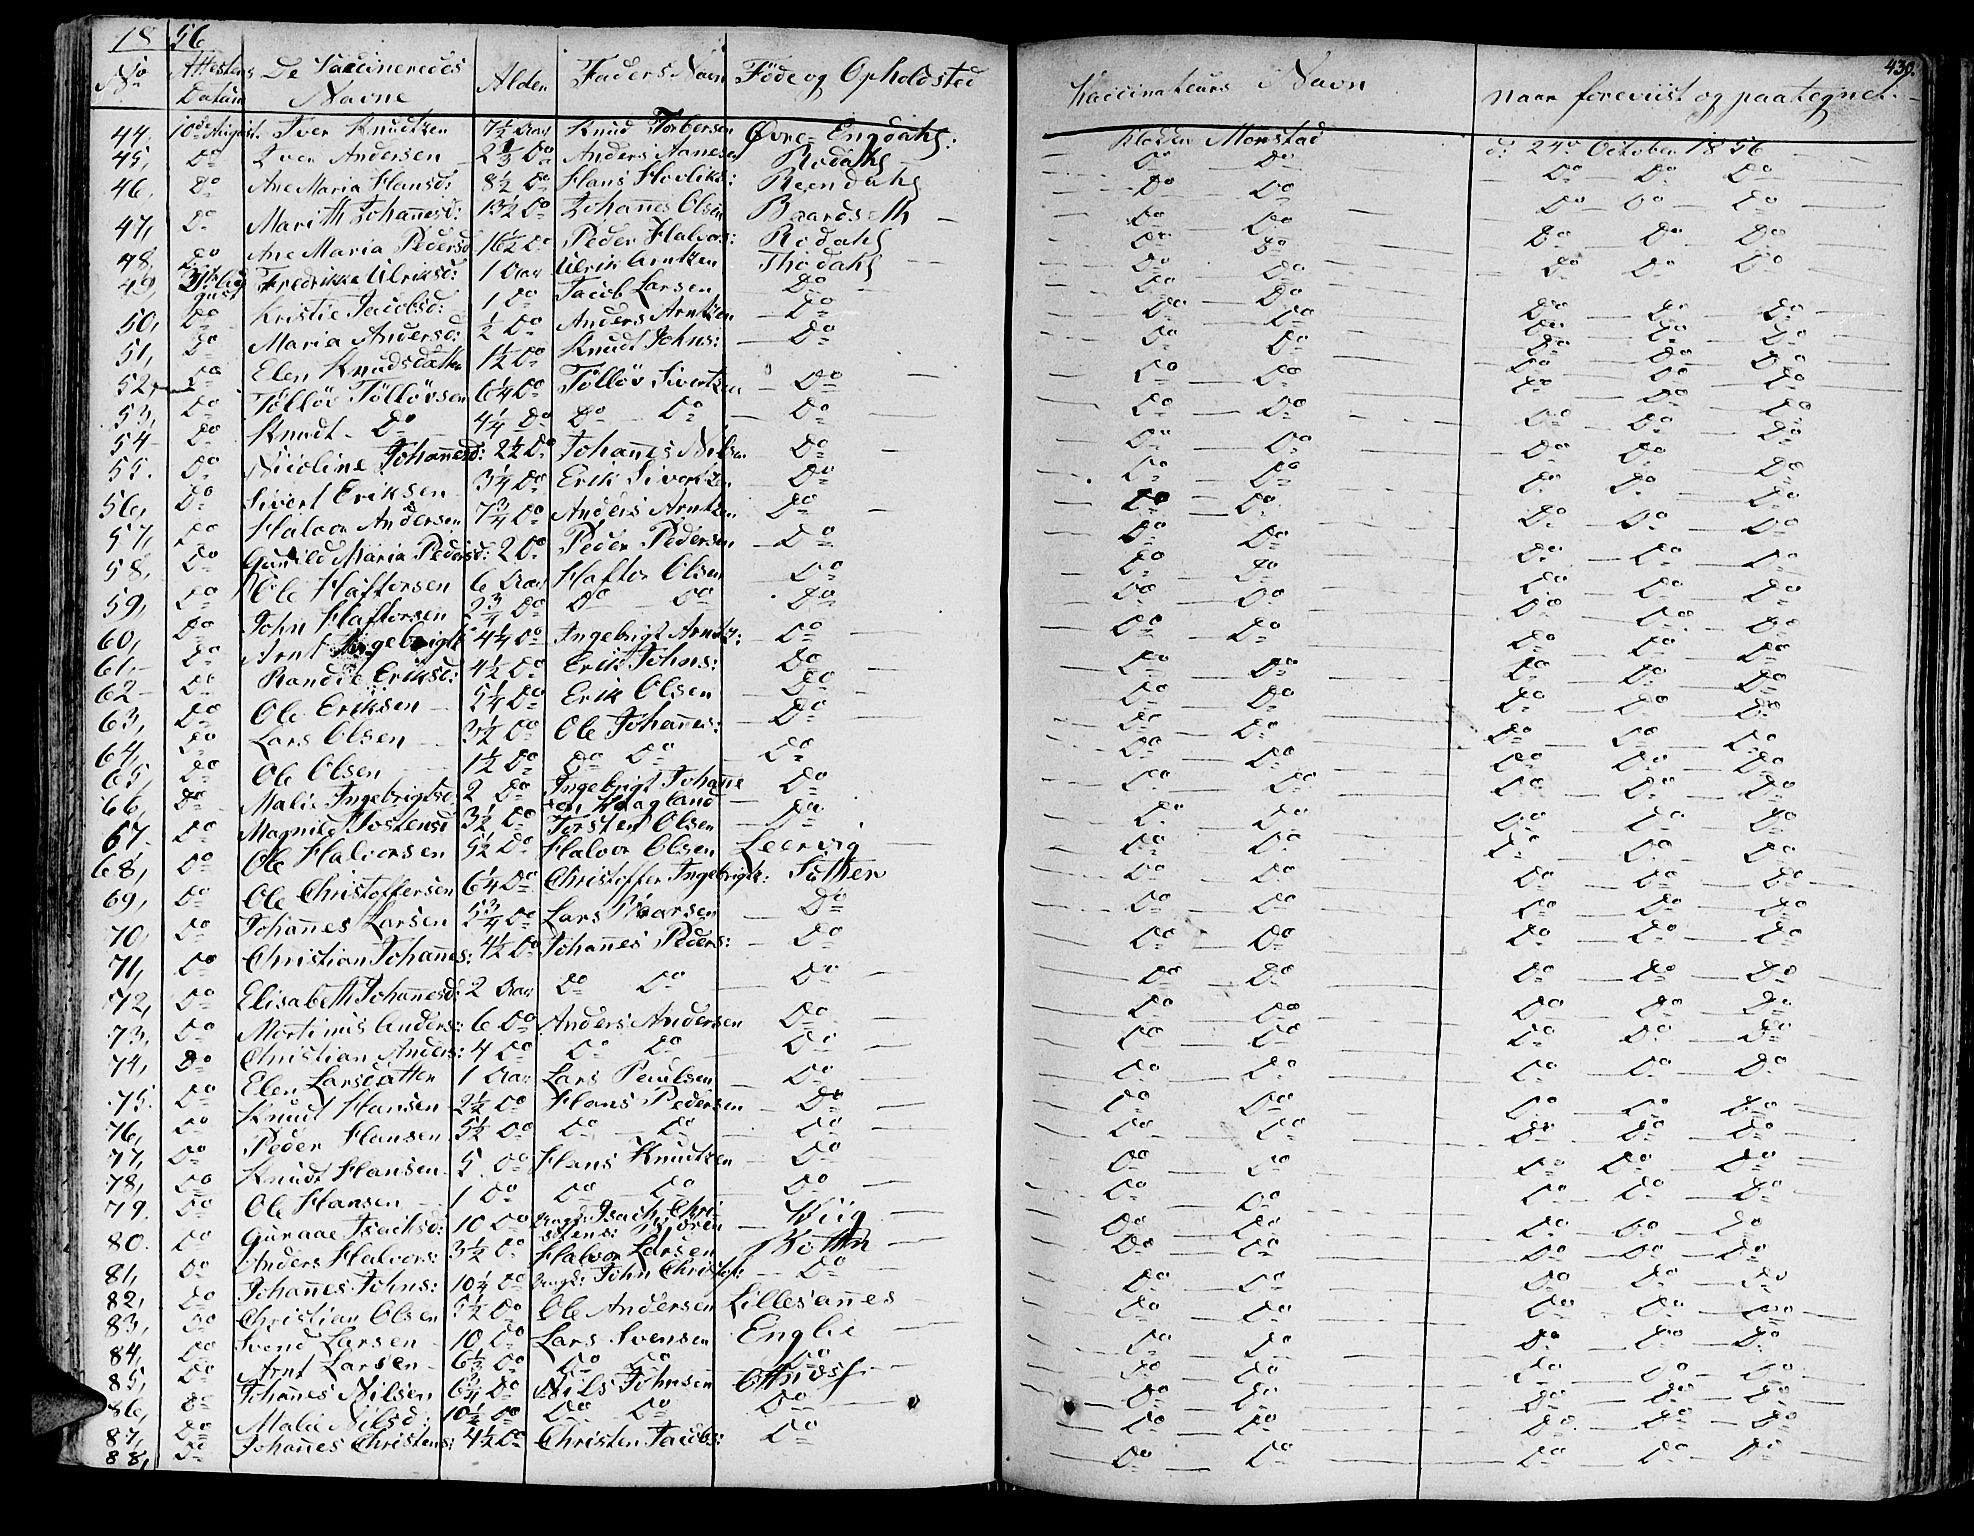 18 56
430.
No Attestens Datum De Vaccineredes Navne Alder Faders Navn Føde og Opholdsted Vaccinateurs Navn Naar foreviist og paategnet.
44. 10de August. Iver Knudtzen 7½ Aar Knud Torbersen Øvre-Engdahl: Klokker Monstad d: 24de October 1856
45, Do Iver Andersen 2⅓ Do Anders Aanesen Rødahl Do Do Do Do Do
46, Do Ane Maria Hansd: 8½ Do Hans Hovliks: Reendahl Do Do Do Do Do
47, Do Marith Johanesd: 13½ Do Johanes Olsen Baardseth Do Do Do Do Do
48, Do Ane Maria Pedersd 16½ Do Peder Halvors: Rødahl Do Do Do Do Do
49, 31te August Fredrikke Ulriksd: 1 Aar Ulrik Arntzen Thodahl Do Do Do Do Do
50, Do Kristie Jacobsd: 1 Do Jacob Larsen Do Do Do Do Do Do
51, Do Maria Andersd: ½ Do Anders Arntzen Do Do Do Do Do Do
52, Do Elen Knudsdatter 1½ Do Knudt Johns: Do Do Do Do Do Do
53, Do Tølløv Tølløvsen 6¼ Do Tølløv Sivertzen Do Do Do Do Do Do
54 Do Knudt Do 4¼ Do Do Do Do Do Do Do Do Do
55. Do Nicoline Johanesd: 2½ Do Johanes Nilsen Do Do Do Do Do Do
56, Do Sivert Eriksen 3¼ Do Erik Sivertzen Do Do Do Do Do Do
57, Do Halvor Andersen 7¾ Do Anders Arntzen Do Do Do Do Do Do
58, Do Gunild Maria Pedersd: 2 Do Peder Pedersen Do Do Do Do Do Do
59, Do Ole Haftorsen 6 Aar Haftor Olsen Do Do Do Do Do Do
60, Do John Haftorsen 2¾ Do Do Do Do Do Do Do Do Do
61, Do Arnt Ingebrigt 4¼ Do Ingebrigt Arntz: Do Do Do Do Do Do
62 Do Randie Eriksd: 4½ Do Erik Johns: Do Do Do Do Do Do
63, Do Ole Eriksen 5¼ Do Erik Olsen Do Do Do Do Do Do
64, Do Lars Olsen 3½ Do Ole Johanes: Do Do Do Do Do Do
65, Do Ole Olsen 1½ Do Do Do Do Do Do Do Do Do
66, Do Malie Ingebrigtsd 2 Do Ingebrigt Johane sen Haagland Do Do Do Do Do Do
67. Do Magnild Tostensd 3½ Do Torsten Olsen Do Do Do Do Do Do
68, Do Ole Halvorsen 5½ Do Halvor Olsen Leervig Do Do Do Do Do
69, Do Ole Christoffersen 6¼ Do Christoffer Ingebrigts: Sother Do Do Do Do Do
70, Do Johanes Larsen 5¾ Do Lars Do Do Do Do Do Do
71, Do Christian Johanes: 4½ Do Johanes Peders: Do Do Do Do Do Do
72, Do Elisabeth Johanesd: 2 Aar Do Do Do Do Do Do Do Do
73, Do Mortinus Anders: 6 Do Anders Andersen Do Do Do Do Do Do
74, Do Christian Anders: 4 Do Do Do Do Do Do Do Do Do
75. Do Elen Larsdatter 1 Aar Lars Poulsen Do Do Do Do Do Do
76, Do Knudt Hansen 2½ Do Hans Pedersen Do Do Do Do Do Do
77, Do Peder Hansen 5½ Do Do Do Do Do Do Do Do Do
78, Do Knudt Hansen 5 Do Hans Knudtzen Do Do Do Do Do Do
79. Do Ole Hansen 1 Do Do Do Do Do Do Do Do Do
80. Do Guraae Isachsd: 10 Do Isach Chri- stens: Viig Do Do Do Do Do
81, Do Anders Halvors: 3½ Do Halvor Larsen Do Do Do Do Do
82, Do Johanes Johns: 10¼ Do John Christof: Do Do Do Do Do Do
83, Do Christian Olsen 5½ Do Ole Andersen Lillesannes Do Do Do Do Do
84, Do Svend Larsen 10 Do Lars Svensen Englie Do Do Do Do Do
85, Do Arnt Larsen 6½ Do Do Do Do Do Do Do Do Do
86, Do Johanes Nilsen 6¾ Do Nils Johnsen Do Do Do Do Do
87, Do Malie Nilsd: 10½ Do Do Do Do Do Do Do Do Do
88, Do Johanes Christens: 4½ Do Christen Jacobs: Do Do Do Do Do Do